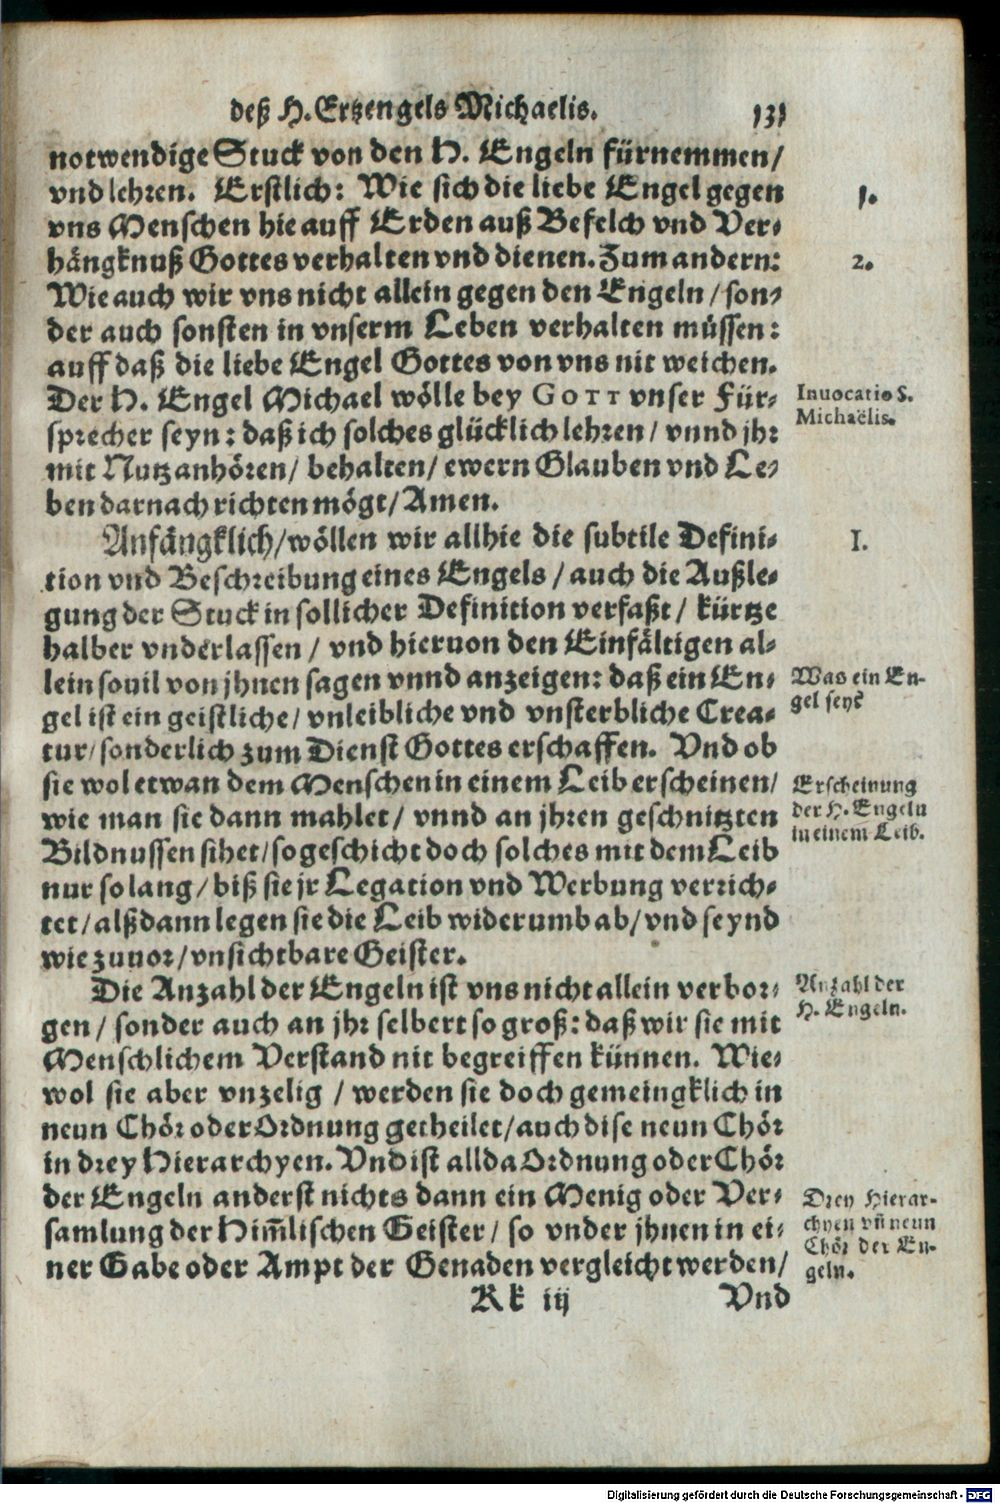 deß H. Ertzengels Michaelis. 131
notwendige Stuck von den H. Engeln fürnemmen/
vnd lehren. Erstlich: Wie sich die liebe Engel gegen
1.
vns Menschen hie auff Erden auß Befelch vnd Ver-
hängknuß Gottes verhalten vnd dienen. Zum andern:
2.
Wie auch wir vns nicht allein gegen den Engeln/ son-
der auch sonsten in vnserm Leben verhalten müssen:
auff daß die liebe Engel Gottes von vns nit weichen.
Der H. Engel Michael wölle bey GOTT vnser Für-
Inuocatio S.
Michaëlis.
sprecher seyn: daß ich solches glücklich lehren/ vnnd jhr
mit Nutz anhören/ behalten/ ewern Glauben vnd Le-
ben darnach richten mögt/ Amen.
Anfängklich/ wöllen wir allhie die subtile Defini-
I.
tion vnd Beschreibung eines Engels/ auch die Außle-
gung der Stuck in sollicher Definition verfaßt/ kürtze
halber vnderlassen/ vnd hieruon den Einfältigen al-
lein souil von jhnen sagen vnnd anzeigen: daß ein En-
Was ein En-
gel seye?
gel ist ein geistliche/ vnleibliche vnd vnsterbliche Crea-
tur/ sonderlich zum Dienst Gottes erschaffen. Vnd ob
sie wol etwan dem Menschen in einem Leib erscheinen/
Erscheinung
der H. Engeln
in einem Leib.
wie man sie dann mahlet/ vnnd an jhren geschnitzten
Bildnussen sihet/ so geschicht doch solches mit dem Leib
nur so lang/ biß sie jr Legation vnd Werbung verrich-
tet/ alßdann legen sie die Leib widerumb ab/ vnd seynd
wie zuuor/ vnsichtbare Geister.
Die Anzahl der Engeln ist vns nicht allein verbor-
Anzahl der
H. Engeln.
gen/ sonder auch an jhr selbert so groß: daß wir sie mit
Menschlichem Verstand nit begreiffen künnen. Wie-
wol sie aber vnzelig/ werden sie doch gemeingklich in
neun Chör oder Ordnung getheilet/ auch dise neun Chör
in drey Hierarchyen. Vnd ist allda Ordnung oder Chör
der Engeln anderst nichts dann ein Menig oder Ver-
Drey Hierar-
chyen vn̄ neun
Chör der En-
geln.
samlung der Him̄lischen Geister/ so vnder jhnen in ei-
ner Gabe oder Ampt der Genaden vergleicht werden/
Kk iij Vnd
Digitalisierung gefördert durch die Deutsche Forschungsgemeinschaft - DFG